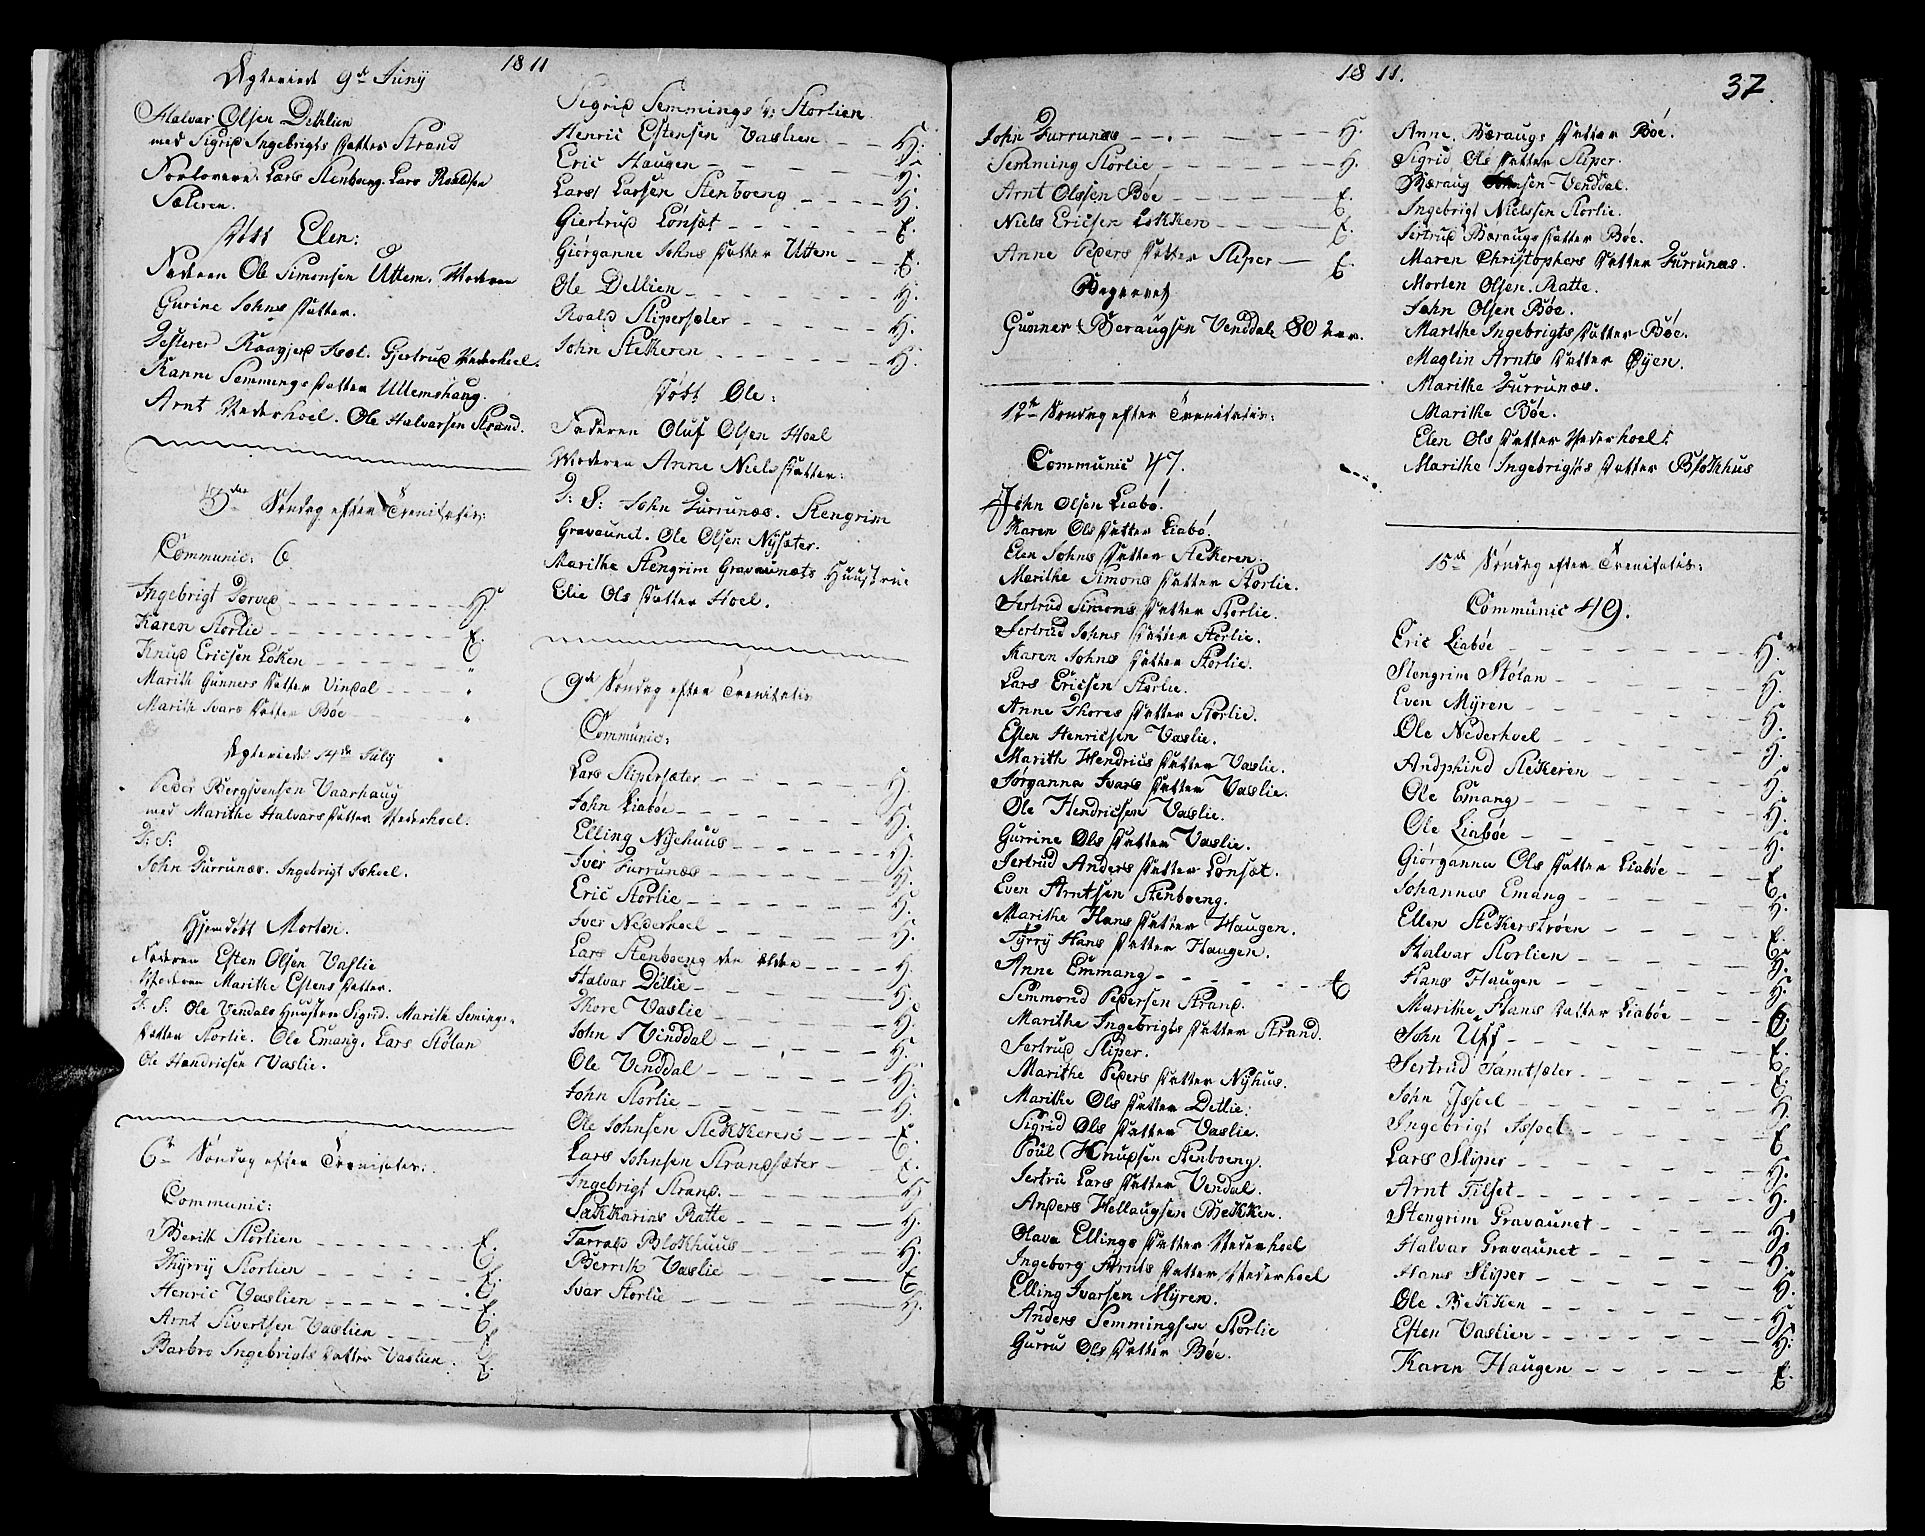 1811
Egteviede 9de Junij
Halvor Olsen Dethlien
med Sigrid Ingebrigts Datter Strand
Forlovere: Lars Stenboeng. Lars Roaldsen
Sæteren.
Døbt Elen:
Faderen Ole Simonsen Uttem. Moderen
Gurine Johns Datter.
Testerer Raavjer Hoel. Gjertrud Nederhoel.
Ranne Semmings Datter Uttemshaug.
Arnt Nederhoel. Ole Halvorsen Strand.
5de Søndag efter Trenitatis:
Communic: 6
Ingebrigt Dorved H.
Karen Storlie E.
Knud Ericsen Loken "
Marith Gunners Datter Vindal "
Marith Ivars Datter Bøe "
Egteviede 14de Julij
Peder Bergsvensen Vaarhaug
med Marithe Halvors Datter Nederhoel.
F: S:
John Furrunæs. Ingebrigt Ishoel.
Hjemdøbt Morten.
Faderen Esten Olsen Vaslie
Moderen Marithe Estens Datter.
F: S: Ole Vendals Huustru Sigrid. Marith Semings-
Datter Storlie. Ole Emang. Lars Stølan
Ole Hendricsen Vaslie.
6te Søndag efter Trenitatis:
Communic:
Berith Storlien E.
Thyrry Storlien E.
Henric Vaslien
Arnt Sivertsen Vaslien E.
Barbro Ingebrigts Datter Vaslien. E.
Sigrid Semmings D: Storlien
Henric Estensen Vaslien H.
Eric Haugen H.
Lars Larsen Stenboeng H.
Giertrud Lønsæt E.
Giørganne Johns Datter Uttem E.
Ole Detlien H.
Roald Slipersæter H.
John Stekeren H.
Døbt Ole:
Faderen Oluf Olsen Hoel
Moderen Anne Niels Datter:
F: S: John Furrunæs. Stengrim
Gravaunet. Ole Olsen Nysæter.
Marithe Stengrim Gravaunets Huustrue
Elie Ols Datter Hoel.
9de Søndag efter Trenitatis
Communic:
Lars Slipersæter H.
John Liabøe H.
Elling Nyehuus H.
Iver Furrunæs H.
Eric Storlie H.
Iver Nederhoel H.
Lars Stenboeng den ældre H.
Halvor Detlie H.
Thore Vaslie H.
John Venddal H.
Ole Venddal H.
John Storlie H.
Ole Johnsen Stekkeren E.
Lars Johnsen Strandsæter E.
Ingebrigt Strand H.
Sakkarias Ratte H.
Tarrald Blokhuus H.
Berrith Vaslie E.
Ivar Storlie H.
1811.
37.
John Furrunæs H.
Semming Storlie H.
Arnt Olssen Bøe E.
Niels Ericsen Løkken E.
Anne Peders Datter Sliper E.
Begravet
Gunner Beraugsen Venddal 80 Aar.
12te Søndag efter Trenitatis:
Communic 47.
John Olsen Liabø.
Karen Ols Datter Liabø.
Elen Johns Datter Stekeren.
Marithe Simons Datter Storlie.
Jertrud Simons Datter Storlie.
Jertrud Johns Datter Storlie.
Karen Johns Datter Storlie.
Lars Ericsen Storlie.
Anne Thores Datter Storlie.
Esten Henricsen Vaslie.
Marith Hendrics Datter Vaslie.
Jørganna Ivars Datter Vaslie.
Ole Hendricsen Vaslie.
Gurrine Ols Datter Vaslie.
Jertrud Anders Datter Lønsæt.
Even Arntsen Stenboeng.
Marithe Hans Datter Haugen.
Tyrry Hans Datter Haugen.
Anne Emmang E
Semmond Pedersen Strand.
Marithe Ingebrigts Datter Strand.
Jertrud Sliper.
Marithe Peders Datter Nyhus.
Marithe Ols Datter Detlie:
Sigrid Ols Datter Vaslie.
Poul Knudsen Stenboeng.
Jertru Lars Datter Vendal.
Anders Hellaugsen Bekken.
Olava Ellings Datter Nederhoel
Ingeborg Arnts Datter Nederhoel
Elling Ivarsen Myren.
Anders Semmingsen Storlie
Gurru Ols Datter Bøe.
Anne Beraugs Datter Bøe.
Sigrid Ols Datter Sliper.
Beraug Johnsen Venddal.
Ingebrigt Nielssen Storlie.
Jertrud Beraugs Datter Bøe.
Maren Christophers Datter Furrunæs.
Morten Olsen Ratte.
John Olsen Bøe.
Marithe Ingebrigts Datter Bøe.
Maglin Arnts Datter Øyen.
Marithe Furrunæs.
Marithe Bøe.
Elen Ols Datter Nederhoel.
Marithe Ingebrigts Datter Blokhus
15de Søndag efter Trenitatis:
Communic 49.
Eric Liabøe H.
Stengrim Stølan H.
Even Myren H.
Ole Nederhoel H.
Andphind Stekeren H.
Ole Emang H.
Ole Liabøe H.
Giørganna Ols Datter Liabøe E.
Johannes Emang H.
Ellen Stekerstrøen E.
Halvor Storlien H.
Hans Haugen H.
Marithe Hans Datter Liabøe E.
John Uff E.
Jertrud Samtsæter E.
John Ishoel H.
Ingebrigt Ishoel E
Lars Sliper H.
Arnt Tilset H.
Stengrim Gravaunet H.
Halvor Gravaunet H.
Hans Sliper H.
Ole Bekken H.
Esten Vaslien H.
Karen Haugen E.